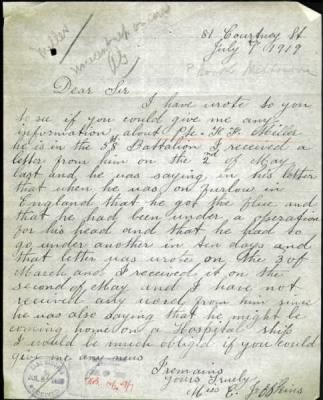 81 Courtney St
July 7 1919
Dear Sir
I have wrote to you
to see if you could give me any
information about Pte. H. F. Miller
he is in the 58 Battalion I received a
letter from him on the 2nd of May
last and he was saying in his letter
that when he was on furlow in
England that he got the flue and
that he had been under a operation
for his head and that he had to
go under another in ten days and
that letter was wrote on the 3 of
March and I received it on the
second of May and I have not
received any word from him since
he was also saying that he might be
coming home on a Hospital ship
I would be much obliged if you could
give me any news
I remains
Yours Truely
Miss E.